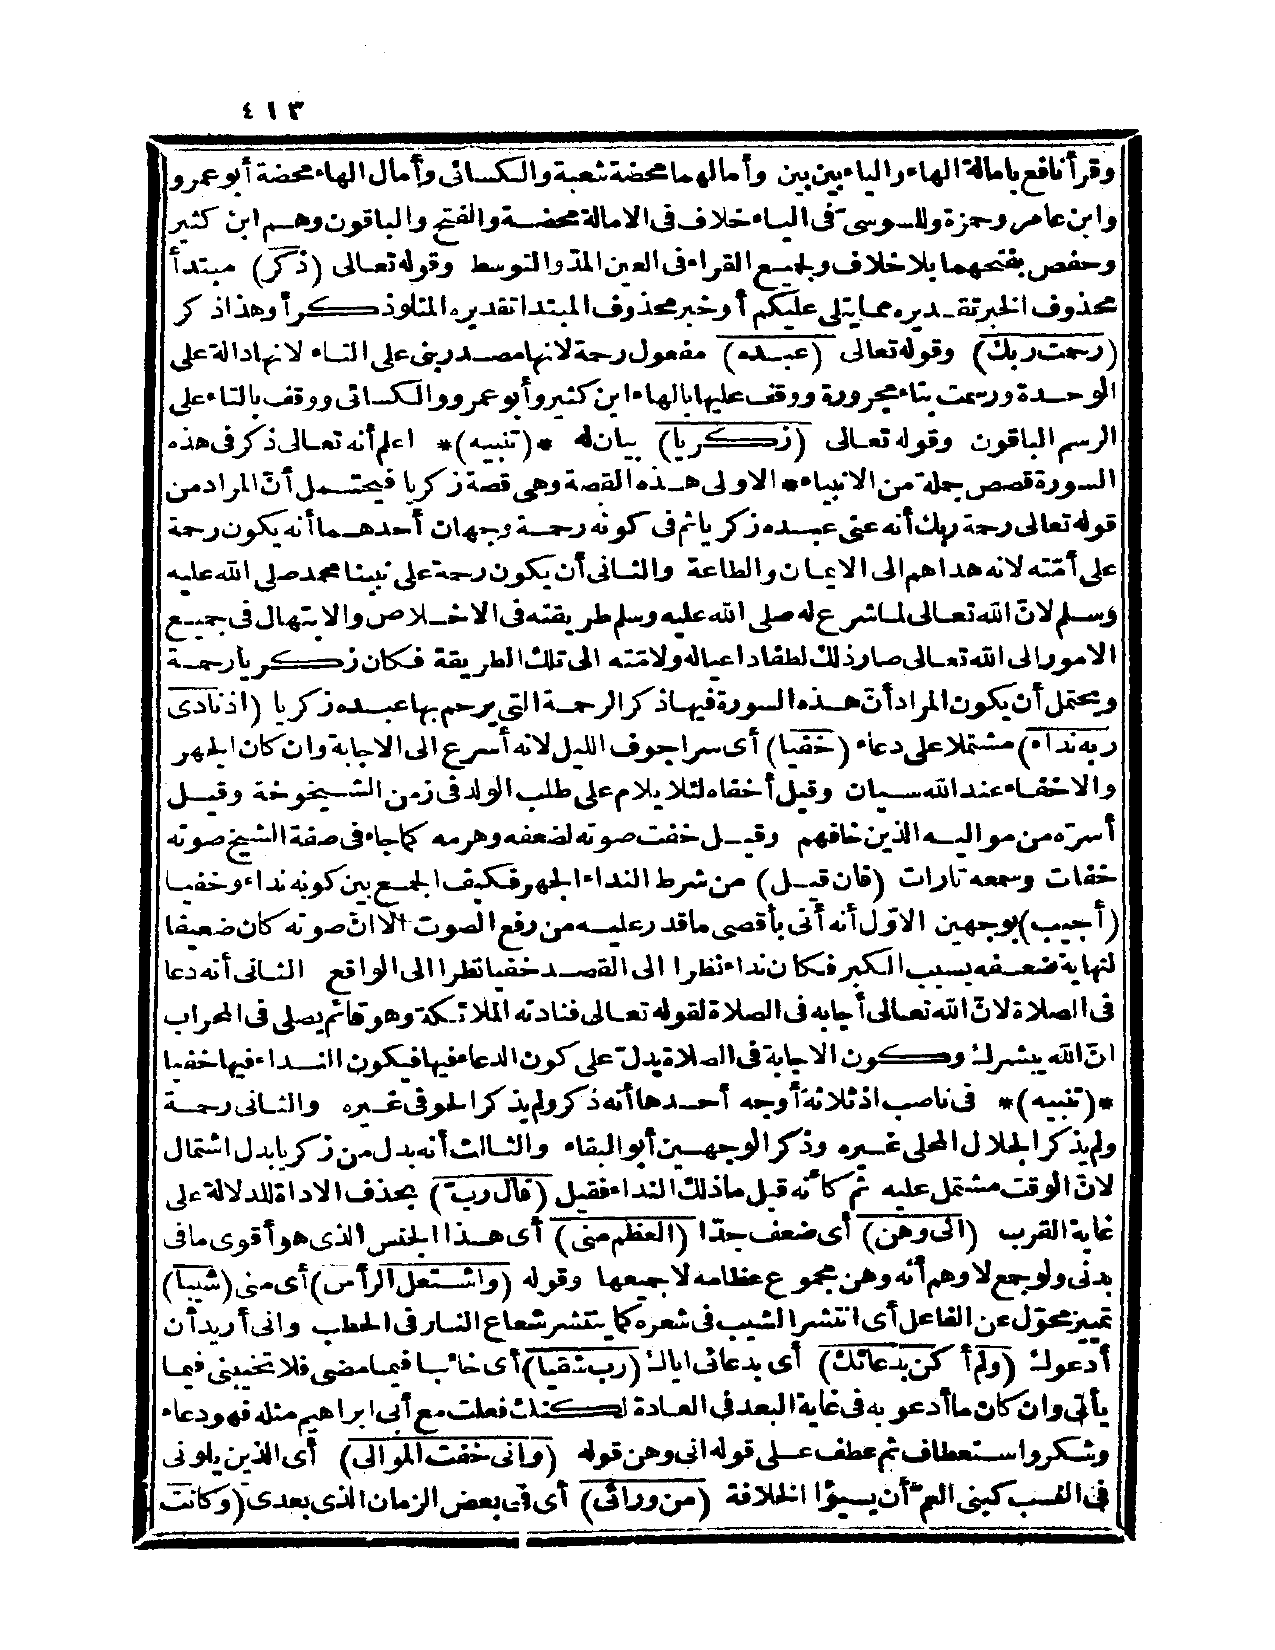 ٤١٣
وقرأ نافع بامالة الهاء والياء بين بين وأمالهما محضة شعبة والكسائى وأمال الهاء محضة أبو عمرو
وابن عامر وحمزة وللسوسى فى الياء خلاف فى الامالة محضة والفتح والباقون وهم ابن كثير
وحفص بفتحهما بلا خلاف ولجميع القراء فى العين المد والتوسط وقوله تعالى (ذكر) مبتدأ
محذوف الخبر تقديره مما يتلى عليكم أو خبر محذوف المبتدا تقديره المتلو ذكر أو هذا ذكر
(رحمت ربك) وقوله تعالى (عبده) مفعول رحمة لانها مصدر بنى على التاء لانها دالة على
الوحدة ورسمت بتاء مجرورة ووقف عليها بالهاء ابن كثير وأبو عمرو والكسائى ووقف بالتاء على
الرسم الباقون وقوله تعالى (زكريا) بيان له *(تنبيه)* اعلم أنه تعالى ذكر فى هذه
السورة قصص جملة من الانبياء * الاولى هذه القصة وهى قصة زكريا فيحتمل أن المراد من
قوله تعالى رحمة ربك أنه عنى عبده زكريا ثم فى كونه رحمة وجهان أحدهما أنه يكون رحمة
على أمّته لانه هداهم الى الايمان والطاعة والثانى أن يكون رحمة على نبينا محمد صلى الله عليه
وسلم لانّ الله تعالى لما شرع له صلى الله عليه وسلم طريقته فى الاخلاص والابتهال فى جميع
الامور الى الله تعالى صار ذلك لطفا داعيا له ولامته الى تلك الطريقة فكان زكريا رحمة
ويحتمل أن يكون المراد أن هذه السورة فيها ذكر الرحمة التى يرحم بها عبده زكريا (اذ نادى
ربه نداء) مشتملا على دعاء (خفيا) أى سرا جوف الليل لانه أسرع الى الاجابة وان كان الجهر
والاخفاء عند الله سيان وقيل أخفاه لئلا يلام على طلب الولد فى زمن الشيخوخة وقيل
أسرّه من مواليه الذين خافهم وقيل خفت صوته لضعفه وهرمه كما جاء فى صفة الشيخ صوته
خفات وسمعه تارات (فان قيل) من شرط النداء الجهر فكيف الجمع بين كونه نداء وخفيا
(أجيب) بوجهين الاوّل أنه أتى بأقصى ما قدر عليه من رفع الصوت الا انّ صوته كان ضعيفا
لنهاية ضعفه بسبب الكبر فكان نداء نظرا الى القصد خفيا نظرا الى الواقع الثانى أنه دعا
فى الصلاة لانّ الله تعالى أجابه فى الصلاة لقوله تعالى فنادته الملائكة وهو قائم يصلى فى المحراب
انّ الله يبشرك وكون الاجابة فى الصلاة يدل على كون الدعاء فيها فيكون النداء فيها خفيا
*(تنبيه)* فى ناصب اذ ثلاثة أوجه أحدها أنه ذكر ولم يذكر الحوفى غيره والثانى رحمة
ولم يذكر الجلال المحلى غيره وذكر الوجهين أبو البقاء والثالث أنه بدل من زكريا بدل اشتمال
لانّ الوقت مشتمل عليه ثم كأنه قيل ما ذلك النداء فقيل (قال رب) بحذف الاداة للدلالة على
غاية القرب (انى وهن) أى ضعف جدّا (العظم منى) أى هذا الجنس الذى هو أقوى ما فى
بدنى ولو جمع لاوهم أنه وهن مجموع عظامه لا جميعها وقوله (واشتعل الرأس) أى منى (شيبا)
تمييز محوّل عن الفاعل أى انتشر الشيب فى شعره كما ينتشر شعاع النار فى الحطب وانى أريد أن
أدعوك (ولم أكن بدعائك) أى بدعائى اياك (رب شقيا) أى خائبا فيما مضى فلا تخيبنى فيما
يأتى وان كان ما أدعو به فى غاية البعد فى العادة لكنك فعلت مع أبى ابراهيم مثله فهو دعاء
وشكر واستعطاف ثم عطف على قوله انى وهن قوله (وانى خفت الموالى) أى الذين يلونى
فى النسب كبنى العم أن يسيؤا الخلافة (من ورائى) أى فى بعض الزمان الذى بعدى (وكانت